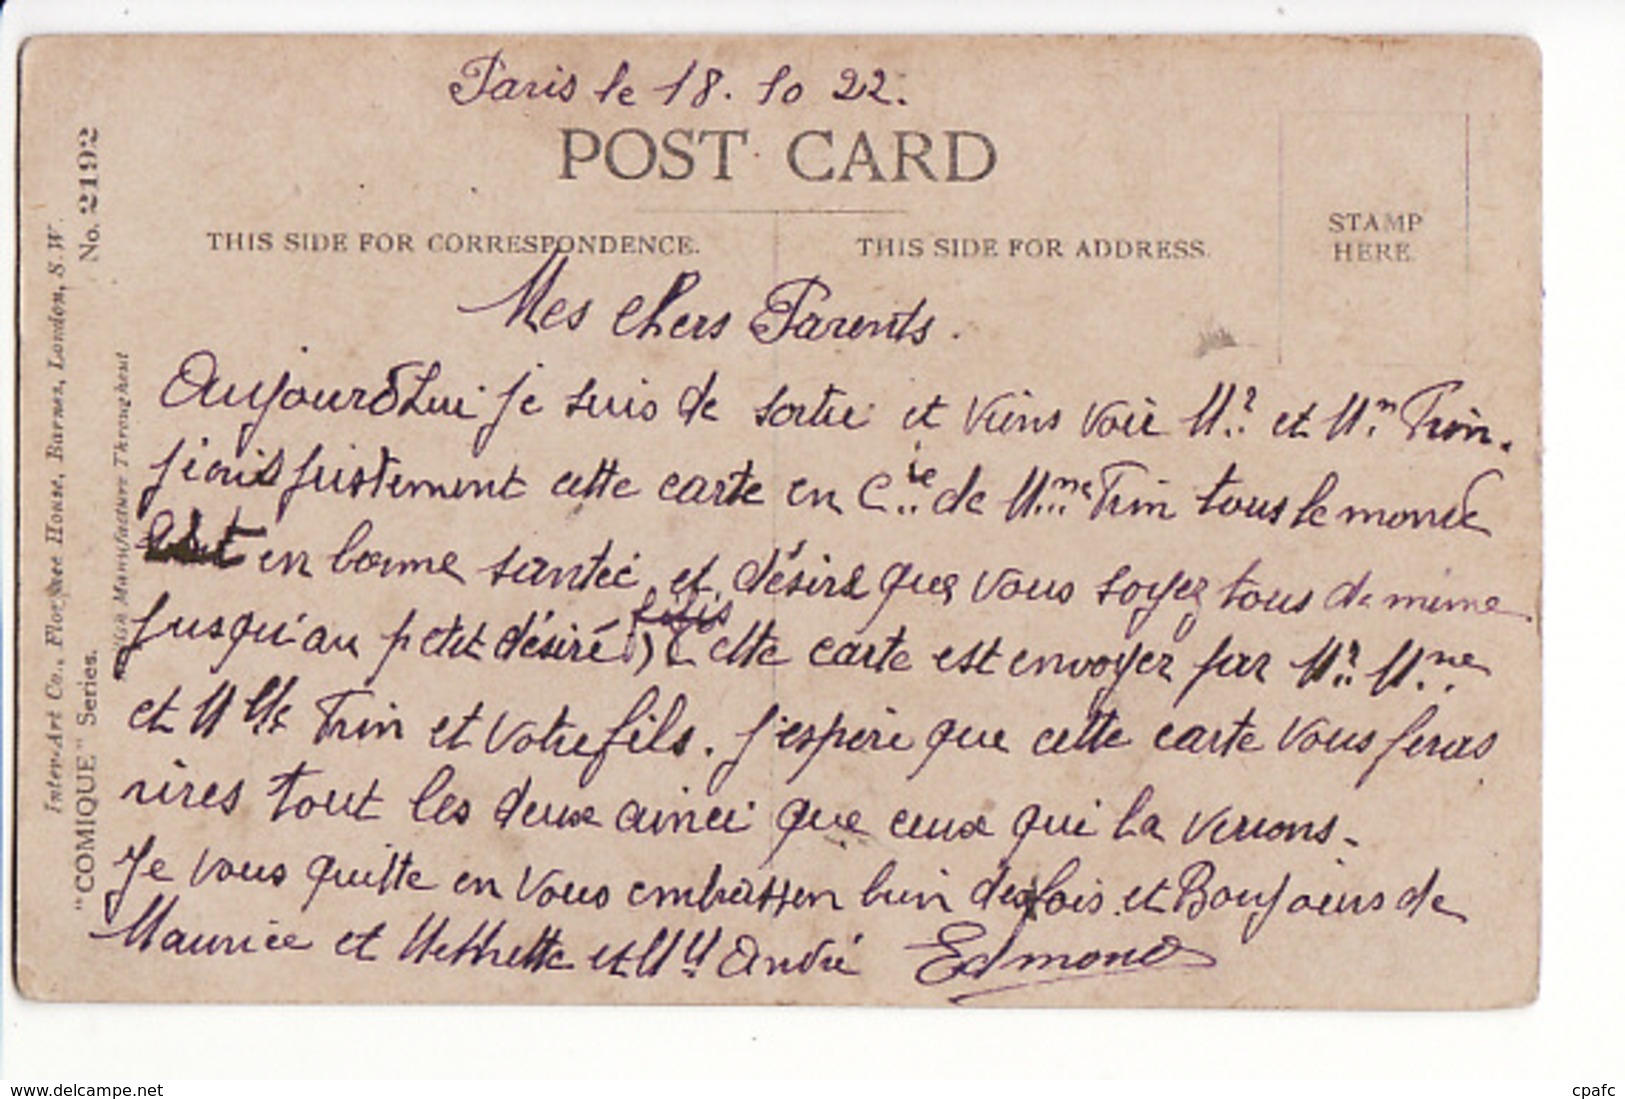 Paris le 18. 10 22.
POST CARD
THIS SIDE FOR CORRESPONDENCE.
THIS SIDE FOR ADDRESS.
STAMP
HERE.
No. 2192
Inter-Art Co., Florence House, Barnes, London, S.W.
"COMIQUE" Series.
British Manufacture Throughout
Mes chers Parents.
Aujourd'hui je suis de sortie et viens voir Mr. et Mm. Trin.
j'ecris justement cette carte en Cie de Mme Trin tous le monde
est en bonne santée et désire que vous soyez tous de mime
jusqu'au petit désiré Cette carte est envoyer par Mr. Mme
et Mlle Trin et votre fils. j'espère que cette carte vous feras
rires tout les deux ainci que ceux qui la verrons-
Je vous quitte en vous embrassen bien des fois et Boujours de
Maurice et et Mll André Edmond
www.delcampe.net
cpafc